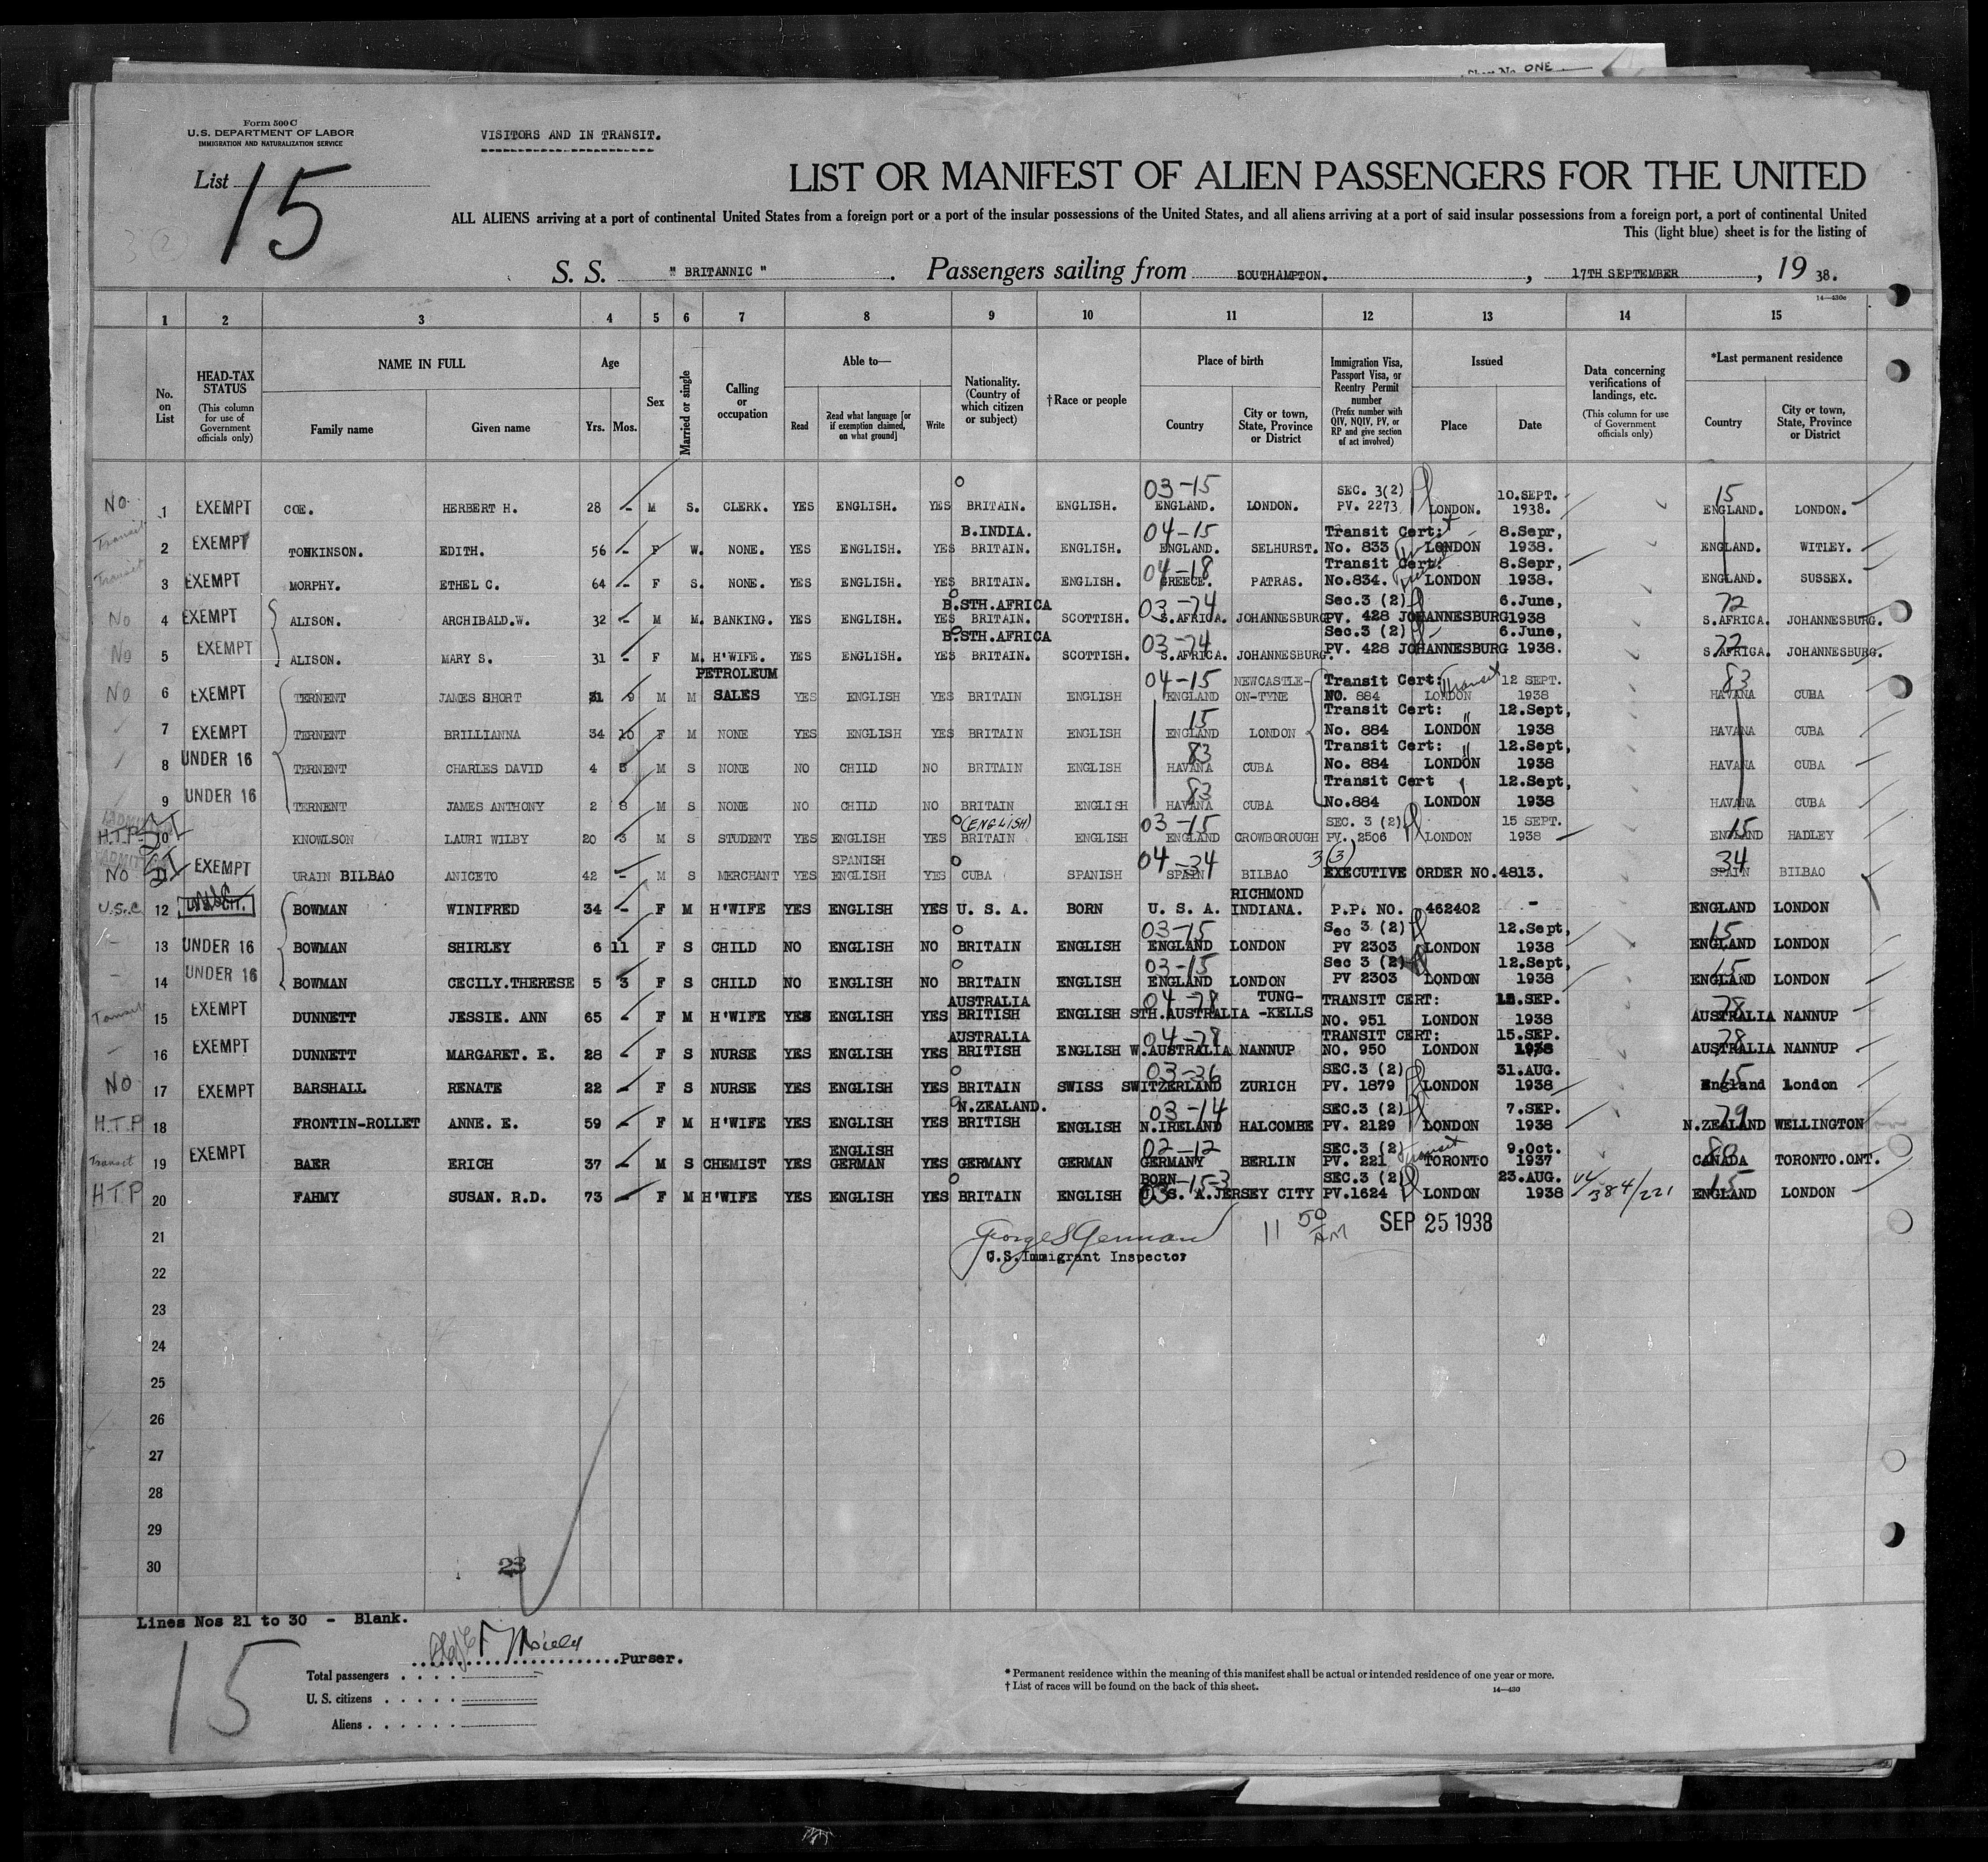 Sheet No. ONE
Form 500 C
U.S. DEPARTMENT OF LABOR
IMMIGRATION AND NATURALIZATION SERVICE
VISITORS AND IN TRANSIT.
List 15
LIST OR MANIFEST OF ALIEN PASSENGERS FOR THE UNITED
ALL ALIENS arriving at a port of continental United States from a foreign port or a port of the insular possessions of the United States, and all aliens arriving at a port of said insular possessions from a foreign port, a port of continental United
This (light blue) sheet is for the listing of
S. S. " BRITANNIC ". Passengers sailing from SOUTHAMPTON. , 17TH SEPTEMBER , 19 38.
14—430c
1 2 3 4 5 6 7 8 9 10 11 12 13 14 15
No. on List
HEAD-TAX STATUS (This column for use of Government officials only)
NAME IN FULL Family name Given name
Age Yrs. Mos.
Sex
Married or single
Calling or occupation
Able to— Read Read what language [or if exemption claimed, on what ground] Write
Nationality. (Country of which citizen or subject)
†Race or people
Place of birth Country City or town, State, Province or District
Immigration Visa, Passport Visa, or Reentry Permit number (Prefix number with QIV, NQIV, PV, or RP and give section of act involved)
Issued Place Date
Data concerning verifications of landings, etc. (This column for use of Government officials only)
*Last permanent residence Country City or town, State, Province or District
03-15 SEC. 3(2) 10.SEPT. 15
No 1 EXEMPT COE. HERBERT H. 28 - M S. CLERK. YES ENGLISH. YES BRITAIN. ENGLISH. ENGLAND. LONDON. PV. 2273 LONDON. 1938. ENGLAND. LONDON.
B.INDIA. 04-15 Transit Cert: 8.Sepr,
Transit 2 EXEMPT TONKINSON. EDITH. 56 - F W. NONE. YES ENGLISH. YES BRITAIN. ENGLISH. ENGLAND. SELHURST. No. 833 LONDON 1938. ENGLAND. WITLEY.
04-18 Transit Cert: 8.Sepr,
Transit 3 EXEMPT MORPHY. ETHEL C. 64 - F S. NONE. YES ENGLISH. YES BRITAIN. ENGLISH. GREECE. PATRAS. No.834. LONDON 1938. ENGLAND. SUSSEX.
B.STH.AFRICA 03-74 Sec.3 (2) 6.June, 72
No 4 EXEMPT ALISON. ARCHIBALD.W. 32 - M M. BANKING. YES ENGLISH. YES BRITAIN. SCOTTISH. S.AFRICA. JOHANNESBURG PV. 428 JOHANNESBURG 1938 S.AFRICA. JOHANNESBURG.
B.STH.AFRICA 03-74 Sec.3 (2) 6.June, 72
No 5 EXEMPT ALISON. MARY S. 31 - F M. H'WIFE. YES ENGLISH. YES BRITAIN. SCOTTISH. S.AFRICA. JOHANNESBURG. PV. 428 JOHANNESBURG 1938. S.AFRICA. JOHANNESBURG.
PETROLEUM 04-15 NEWCASTLE- Transit Cert: Transit 12 SEPT. 83
No 6 EXEMPT TERNENT JAMES SHORT 31 9 M M SALES YES ENGLISH YES BRITAIN ENGLISH ENGLAND ON-TYNE NO. 884 LONDON 1938 HAVANA CUBA
15 Transit Cert: " 12.Sept,
7 EXEMPT TERNENT BRILLIANNA 34 10 F M NONE YES ENGLISH YES BRITAIN ENGLISH ENGLAND LONDON No. 884 LONDON 1938 HAVANA CUBA
83 Transit Cert: " 12.Sept,
8 UNDER 16 TERNENT CHARLES DAVID 4 5 M S NONE NO CHILD NO BRITAIN ENGLISH HAVANA CUBA No. 884 LONDON 1938 HAVANA CUBA
83 Transit Cert 12.Sept,
9 UNDER 16 TERNENT JAMES ANTHONY 2 8 M S NONE NO CHILD NO BRITAIN ENGLISH HAVANA CUBA No.884 LONDON 1938 HAVANA CUBA
ADMITTED (ENGLISH) 03-15 SEC. 3 (2) 15 SEPT. 15
H.T.P. 10 KNOWLSON LAURI WILBY 20 3 M S STUDENT YES ENGLISH YES BRITAIN ENGLISH ENGLAND CROWBOROUGH PV. 2506 LONDON 1938 ENGLAND HADLEY
ADMITTED SPANISH 04-34 3(3) 34
No 11 EXEMPT URAIN BILBAO ANICETO 42 - M S MERCHANT YES ENGLISH YES CUBA SPANISH SPAIN BILBAO EXECUTIVE ORDER NO.4813. SPAIN BILBAO
RICHMOND
U.S.C. 12 U.S. CIT. BOWMAN WINIFRED 34 - F M H'WIFE YES ENGLISH YES U. S. A. BORN U. S. A. INDIANA. P.P. NO. 462402 - ENGLAND LONDON
03-15 Sec 3 (2) 12.Sept, 15
13 UNDER 16 BOWMAN SHIRLEY 6 11 F S CHILD NO ENGLISH NO BRITAIN ENGLISH ENGLAND LONDON PV 2303 LONDON 1938 ENGLAND LONDON
03-15 Sec 3 (2) 12.Sept, 15
14 UNDER 16 BOWMAN CECILY.THERESE 5 3 F S CHILD NO ENGLISH NO BRITAIN ENGLISH ENGLAND LONDON PV 2303 LONDON 1938 ENGLAND LONDON
AUSTRALIA 04-78 TUNG- TRANSIT CERT: SEP. 78
Transit 15 EXEMPT DUNNETT JESSIE. ANN 65 - F M H'WIFE YES ENGLISH YES BRITISH ENGLISH STH.AUSTRALIA -KELLS NO. 951 LONDON 1938 AUSTRALIA NANNUP
AUSTRALIA 04-78 TRANSIT CERT: 15.SEP. 78
16 EXEMPT DUNNETT MARGARET. E. 28 - F S NURSE YES ENGLISH YES BRITISH ENGLISH W.AUSTRALIA NANNUP NO. 950 LONDON 1938 AUSTRALIA NANNUP
03-36 SEC.3 (2) 31.AUG. 15
NO 17 EXEMPT BARSHALL RENATE 22 - F S NURSE YES ENGLISH YES BRITAIN SWISS SWITZERLAND ZURICH PV. 1879 LONDON 1938 England London
N.ZEALAND. 03-14 SEC.3 (2) 7.SEP. 79
H.T.P 18 FRONTIN-ROLLET ANNE. E. 59 - F M H'WIFE YES ENGLISH YES BRITISH ENGLISH N.IRELAND HALCOMBE PV. 2129 LONDON 1938 N.ZEALAND WELLINGTON
ENGLISH 02-12 SEC.3 (2) Transit 9.Oct. 80
Transit 19 EXEMPT BAER ERICH 37 - M S CHEMIST YES GERMAN YES GERMANY GERMAN GERMANY BERLIN PV. 221 TORONTO 1937 CANADA TORONTO.ONT.
BORN 03-15-3 SEC.3 (2) 23.AUG. 15
H.T.P 20 FAHMY SUSAN. R.D. 73 - F M H'WIFE YES ENGLISH YES BRITAIN ENGLISH U. S. A. JERSEY CITY PV.1624 LONDON 1938 384/221 ENGLAND LONDON
21 George S German 11 50 AM SEP 25 1938
U.S.Immigrant Inspector
22
23
24
25
26
27
28
29
30
23
Lines Nos 21 to 30 - Blank.
15
Purser.
Total passengers
U. S. citizens
Aliens
* Permanent residence within the meaning of this manifest shall be actual or intended residence of one year or more.
† List of races will be found on the back of this sheet.
14—430